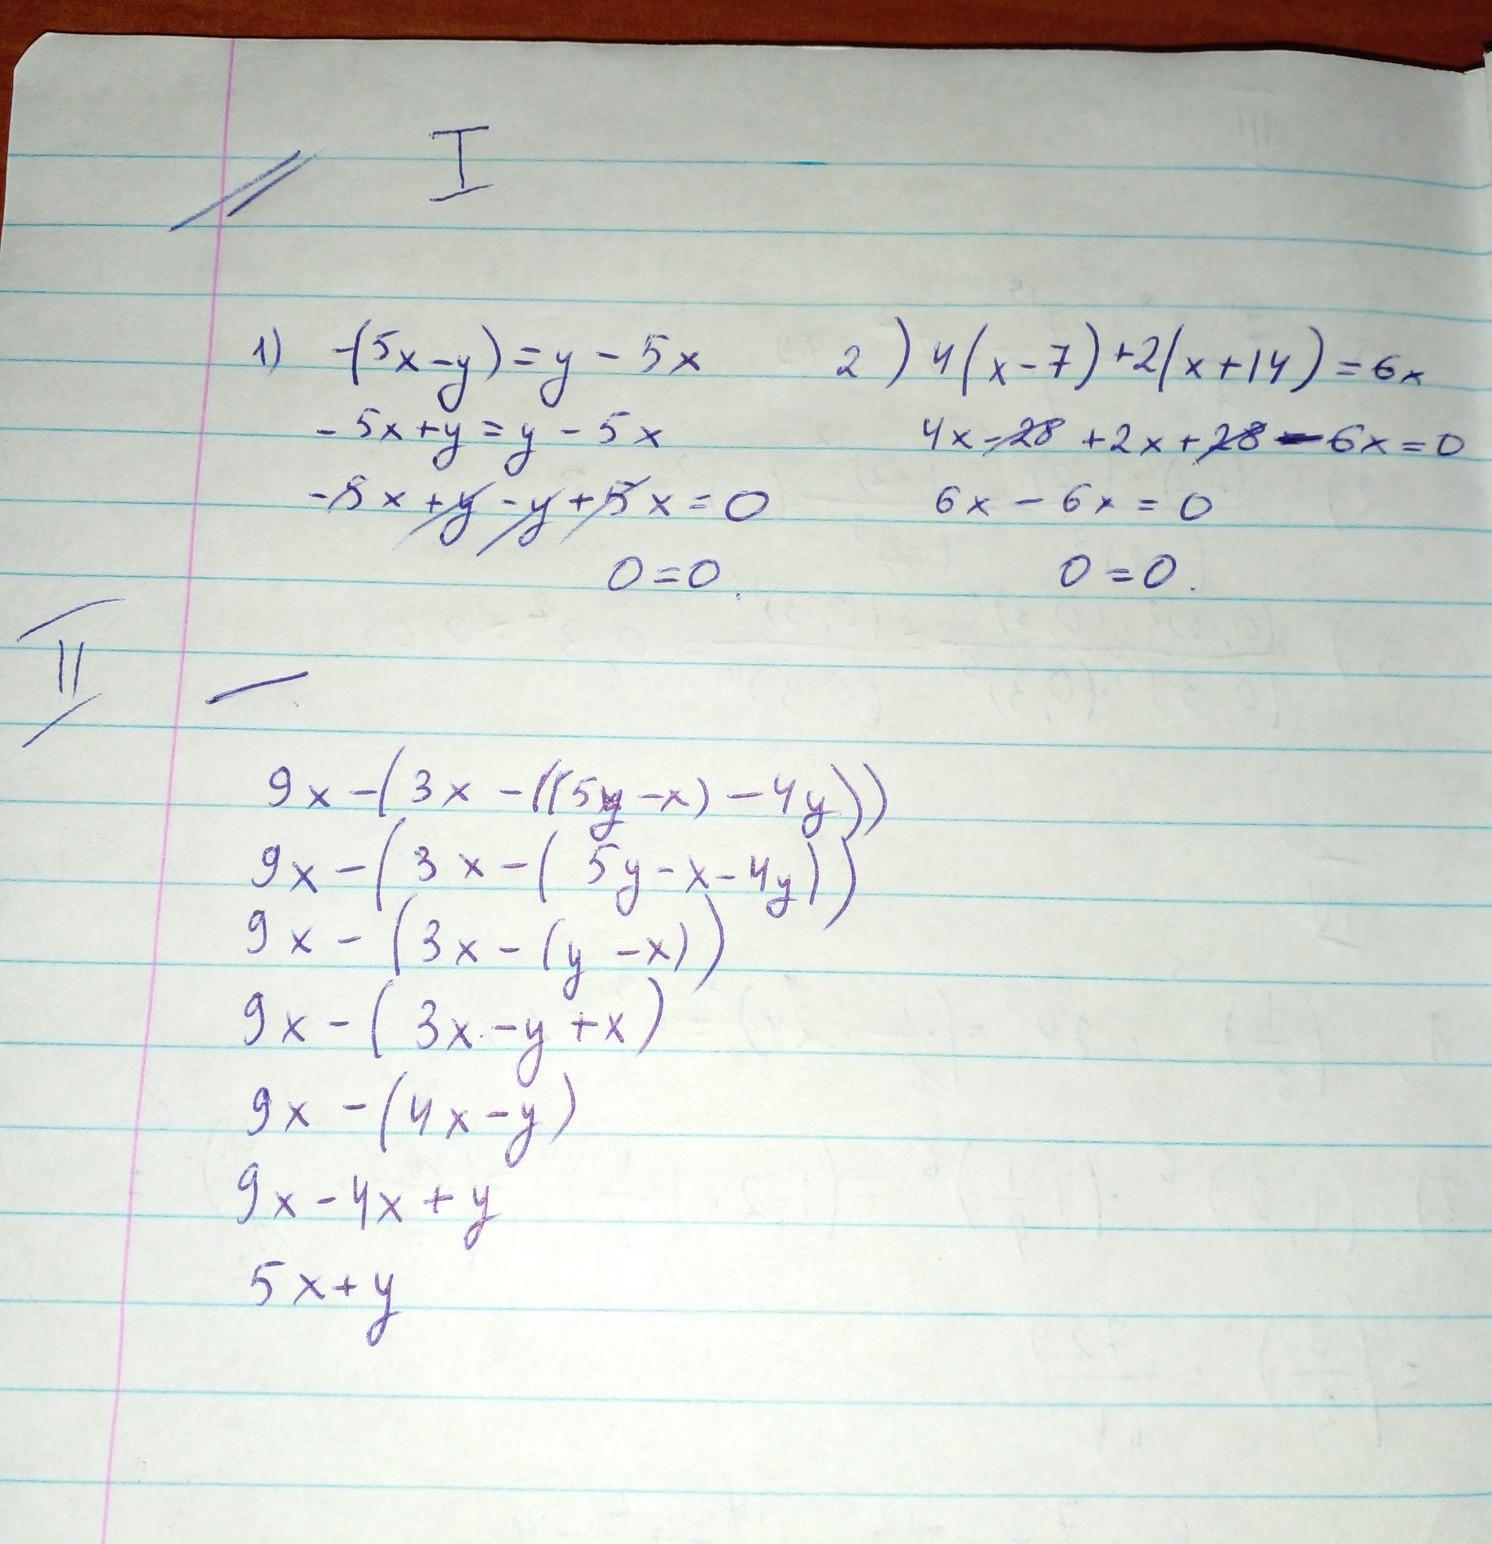 I
1) -(5x-y)=y-5x
-5x+y=y-5x
-5x+y-y+5x=0
0=0.
2) 4(x-7)+2(x+14)=6x
4x-28+2x+28-6x=0
6x-6x=0
0=0.
II
9x-(3x-((5y-x)-4y))
9x-(3x-(5y-x-4y))
9x-(3x-(y-x))
9x-(3x-y+x)
9x-(4x-y)
9x-4x+y
5x+y